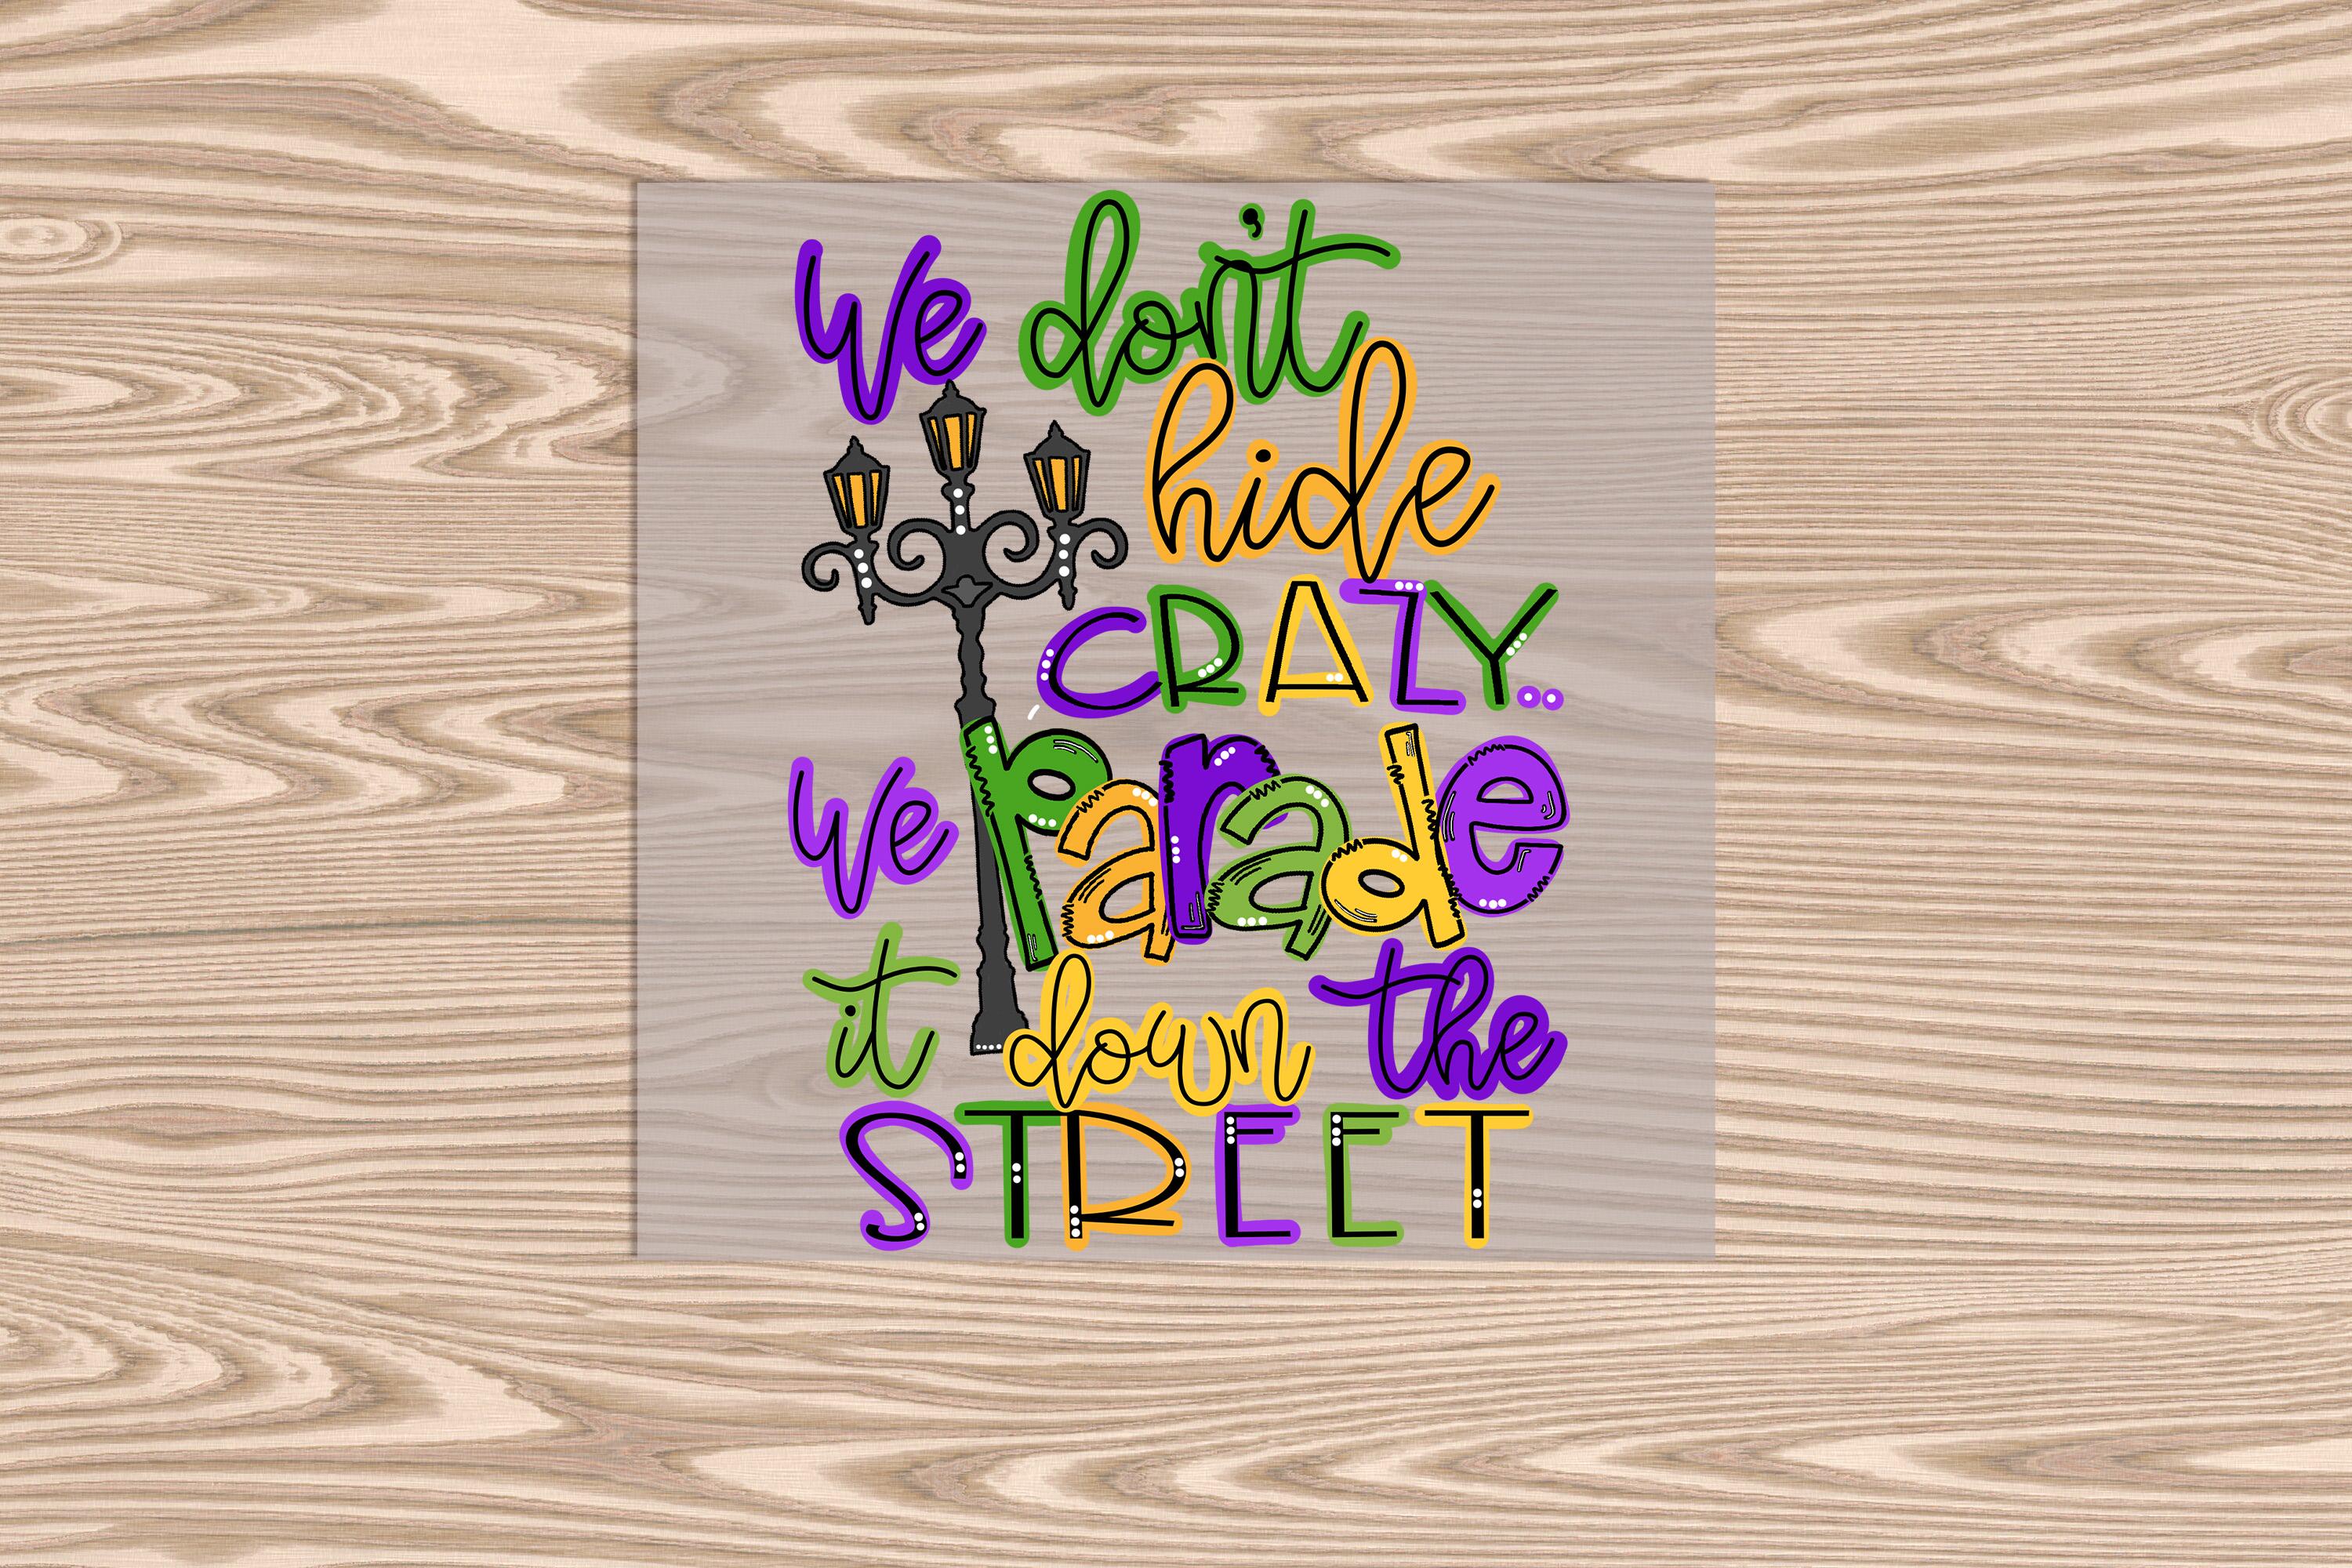 We don't
hide
CRAZY..
We Parade
it down the
STREET